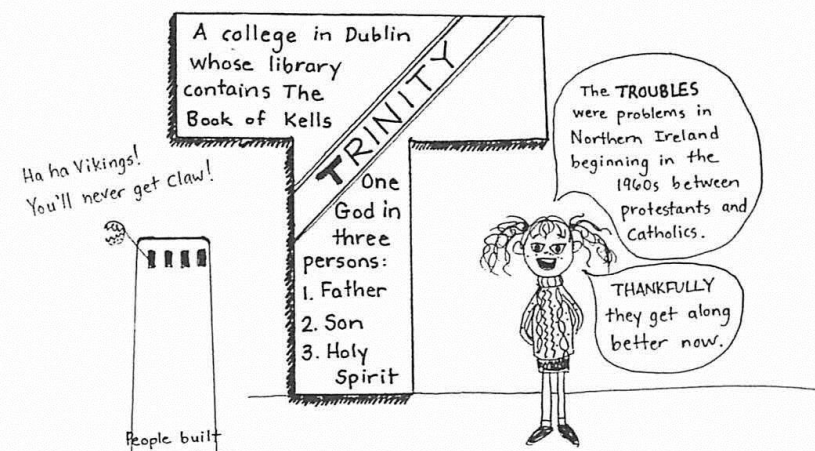 A college in Dublin
whose library
contains The
Book of Kells
TRINITY
One
God in
three
persons:
1. Father
2. Son
3. Holy
Spirit
Ha ha Vikings!
You'll never get Claw!
People built
The TROUBLES
were problems in
Northern Ireland
beginning in the
1960s between
protestants and
Catholics.
THANKFULLY
they get along
better now.